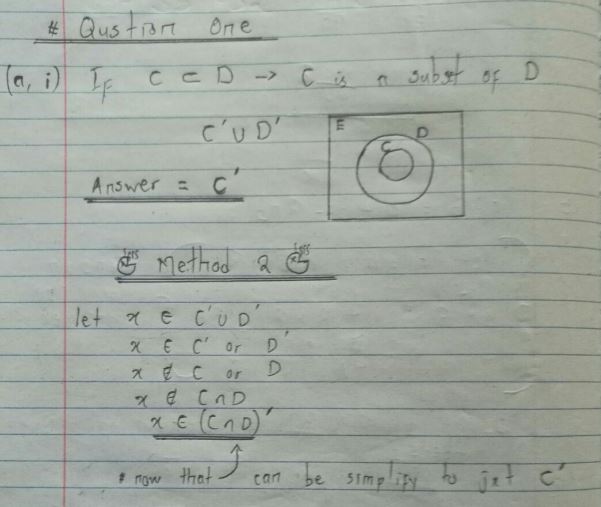 # Qustion One
(a, i) IF C ⊂ D → C is a subset of D
C' ∪ D'
E D
C
Answer = C'
Method 2
let x ∈ C' ∪ D'
x ∈ C' or D'
x ∉ C or D
x ∉ C ∩ D
x ∈ (C ∩ D)'
* now that can be simplify to jst C'